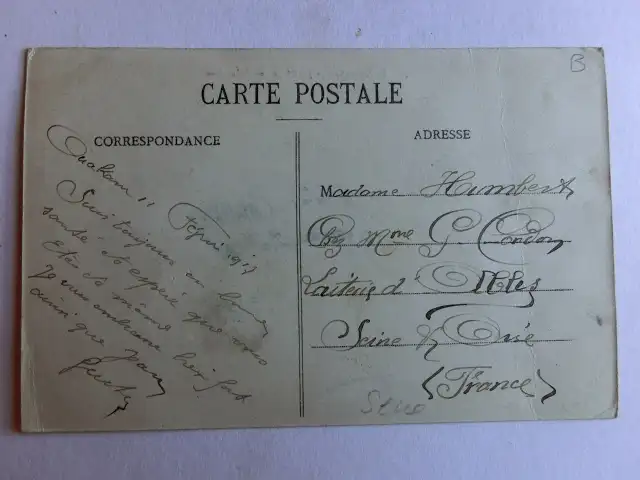 B
CARTE POSTALE
CORRESPONDANCE
Ouakam 11
Suis toujours en bonne
santé. J'espère que vous
êtes de même
Je vous embrasse bien fort
ainsi que
ADRESSE
Madame Humbert
Chez Mme G. Condon
Laiterie d'
Seine & Oise
(France)